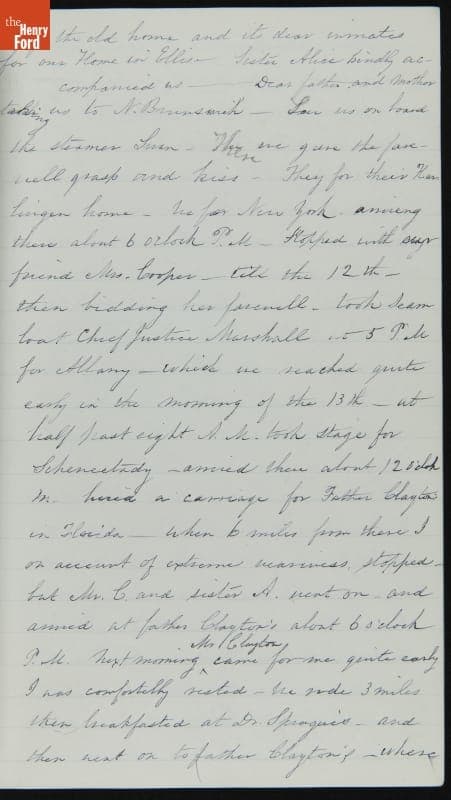 the
Henry
Ford
the old home and its dear inmates
for our Home in Ellis - Sister Alice kindly ac-
companied us - Dear father and Mother
taking us to N. Brunswick - Saw us on board
the steamer Swan - There we gave the fare-
well grasp and kiss - They for their Har
lingen home - We for New York arriving
there about 6 oclock P.M - Stopped with our
friend Mrs. Cooper - till the 12th -
then bidding her farewell - took steam
boat Chief Justice Marshall at 5 P.M
for Albany - which we reached quite
early in the morning of the 13th - at
half past eight A.M. took stage for
Schenectady - arrived there about 12 oclok
M. hired a carriage for Father Clayton's
in Florida - when 6 miles from there I
on account of extreme weariness, stopped -
but Mr. C. and sister A. went on - and
arrived at father Clayton's about 6 oclock
P.M. Next morning Mr Clayton came for me quite early
I was comfortably rested - We rode 3 miles
then breakfasted at Dr. Sprague's - and
then went on to father Clayton's - where